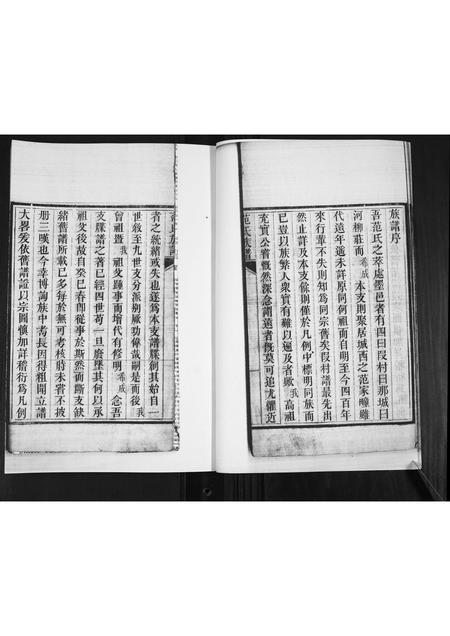 族譜序
吾范氏之萃處墨邑者有四曰段村曰那城曰
河柳莊而希咸本支則聚居城西之范家疃雖
代遠年遒未詳原同何祖而自明至今四百年
來行輩不失則知為同宗舊矣段村譜最先出
然止詳及本支餘則僅於凡例中標明同族而
已豈以族繁人衆實有難以遍及者歟我高祖
充實公嘗慨然深念謂遠者旣莫可追尤懼近
范氏族譜
者之統緒或失也遂為本支譜牒創其始自一
世敘至九世支分派別厥功偉哉嗣是而後我
曾祖暨我祖父踵事而增代有修明希咸念吾
支牒譜之著已經四世苟一旦廢墜其何以承
祖父後故自癸巳春卽從事於斯然而斷支缺
緒舊譜所載已多每於無可考核時未嘗不披
册三嘆也今幸博詢族中耆長因得粗開立譜
大畧爰依舊譜證以宗圖懷加詳稽衍為凡例